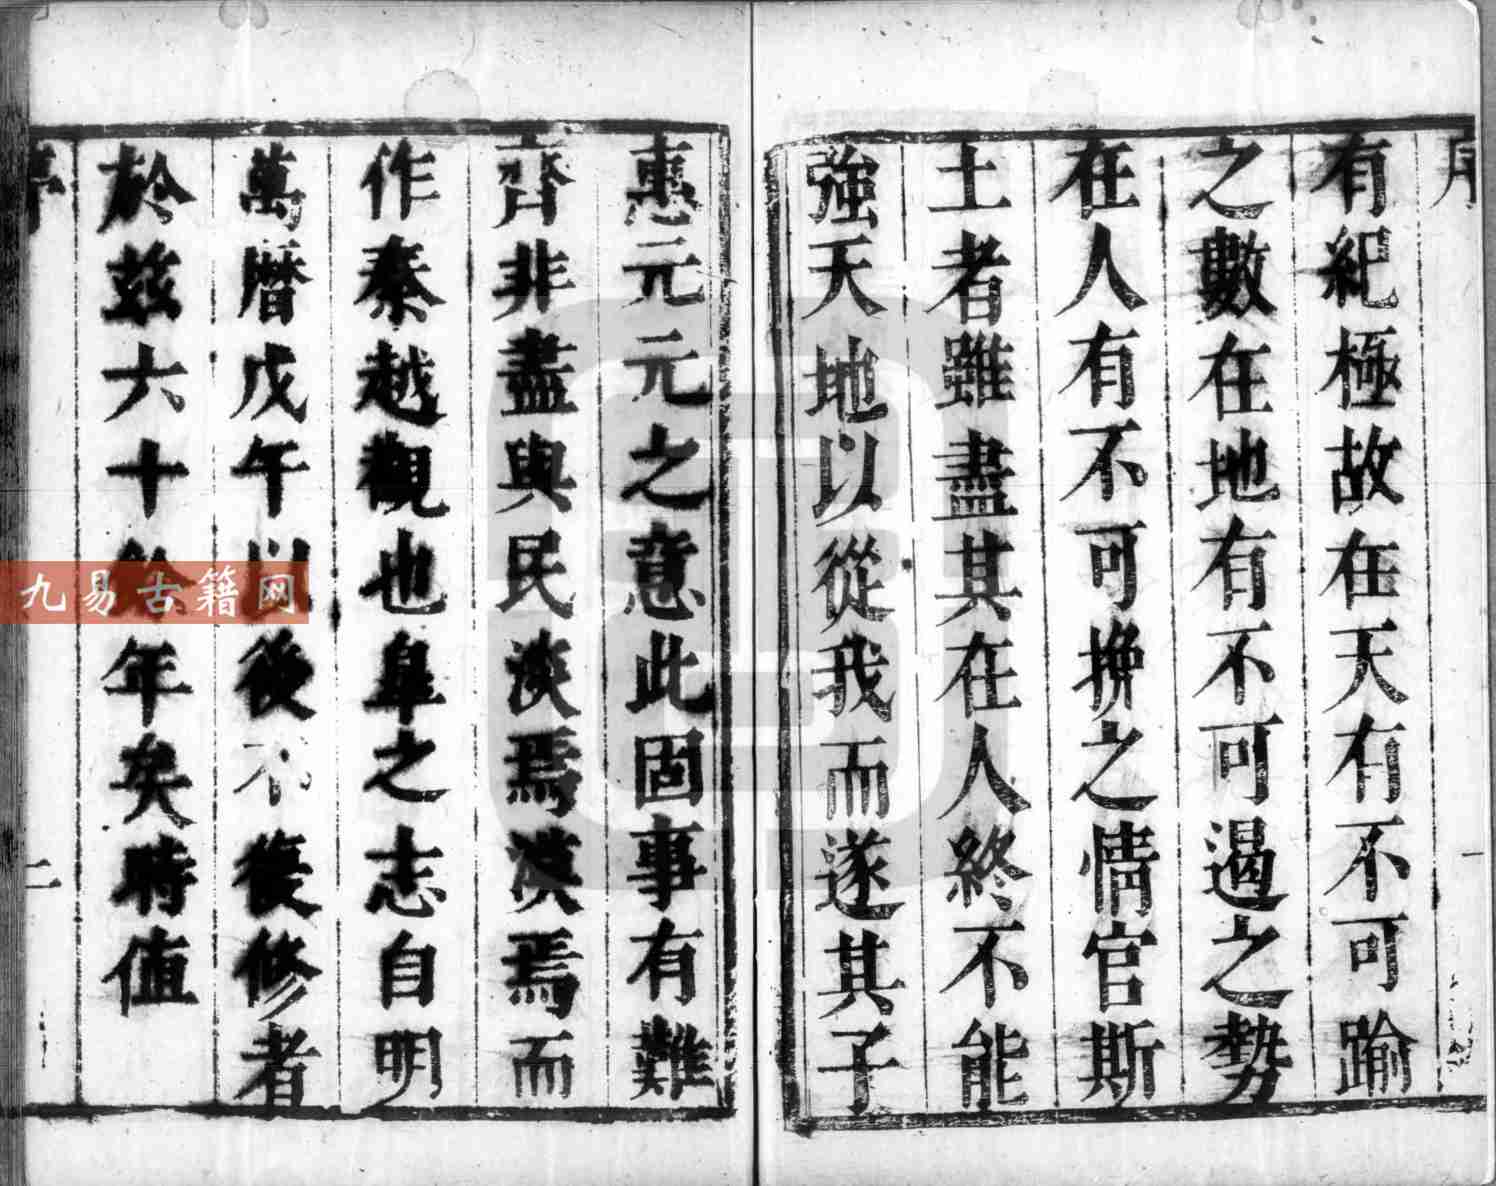 有紀極故在天有不可踰
之數在地有不可遏之勢
在人有不可挽之情官斯
土者雖盡其在人終不能
強天地以從我而遂其子
惠元元之意此固事有難
齊非盡與民淡焉漠焉而
作秦越觀也阜之志自明
萬曆戊午以後不復修者
於茲六十餘年矣時值
序
一
二
九易古籍网